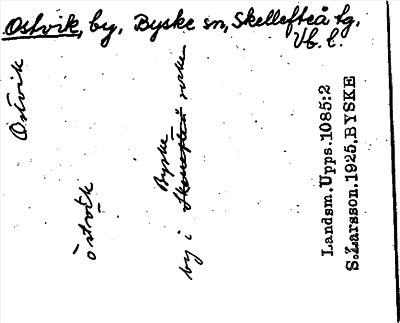 Ostvik, by, Byske sn, Skellefteå tg,
Vb. l.
Ostvik
östvik
Byske
by i Skellefteå socken
Landsm.Upps.1085:2
S.Larsson.1925.BYSKE